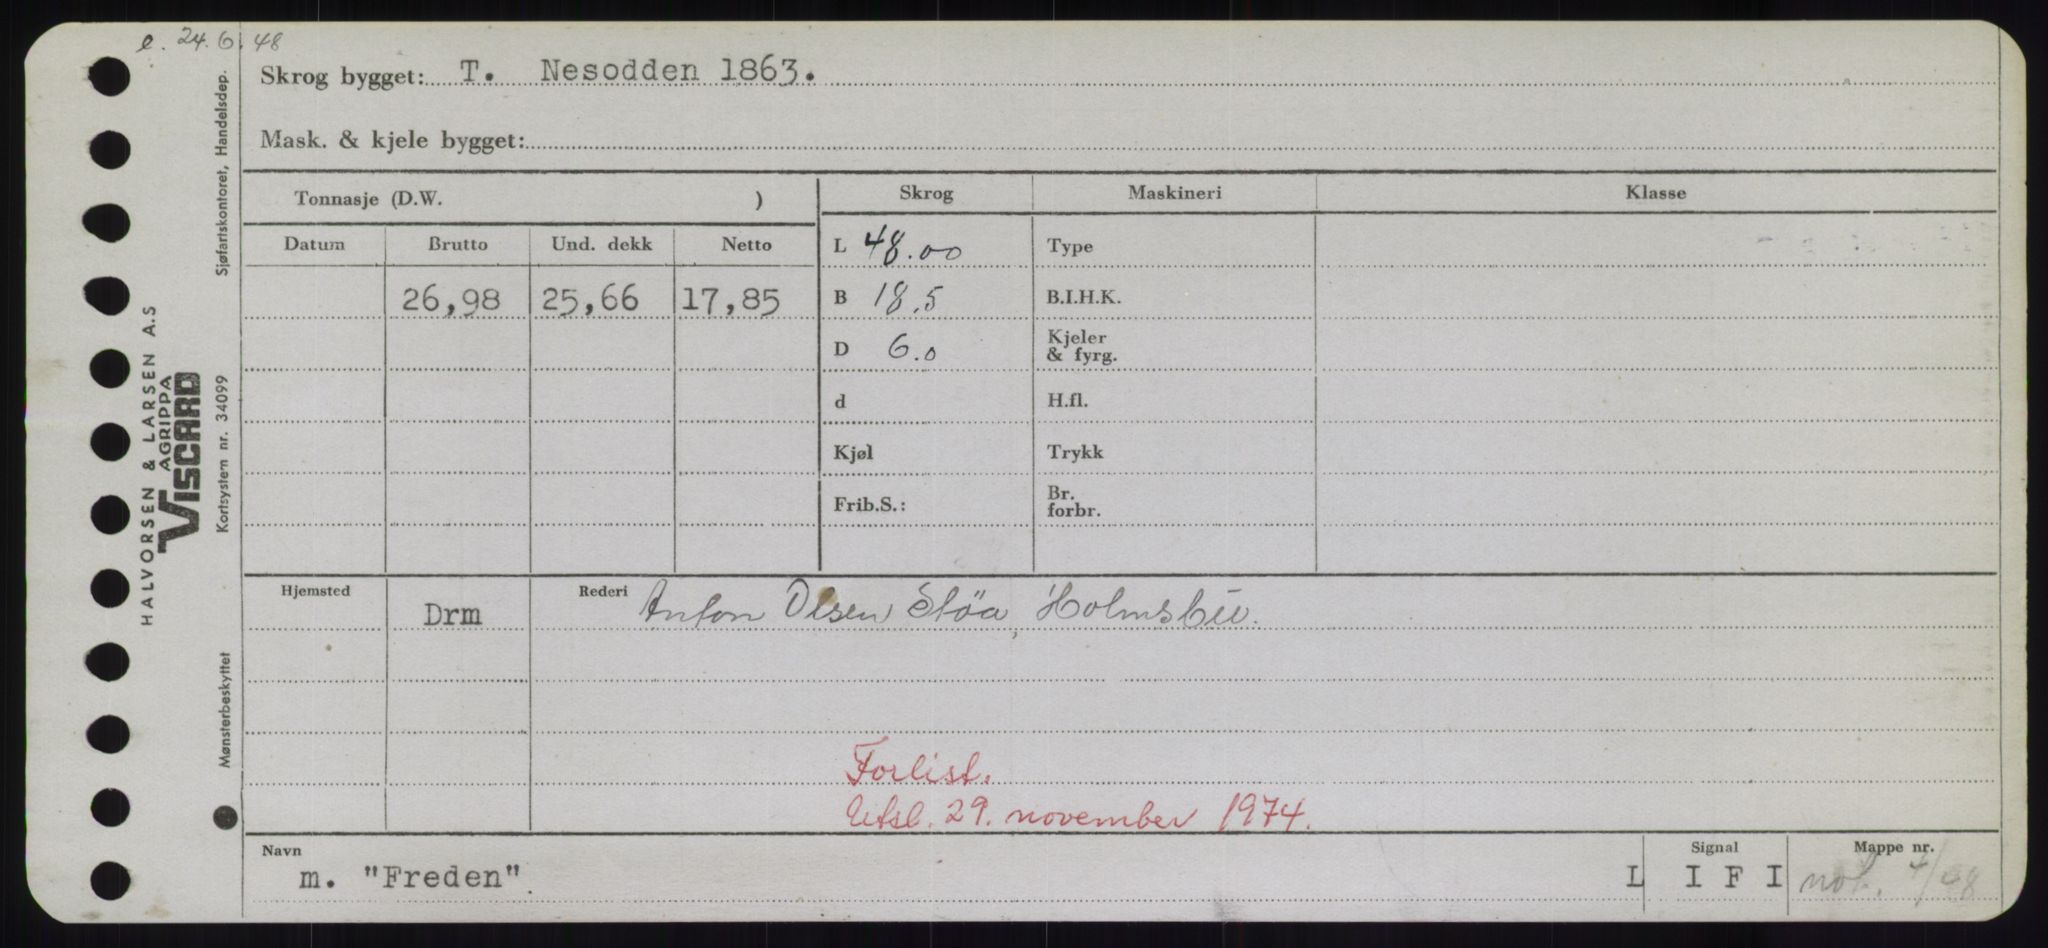 e. 24.6.48
Skrog bygget: T. Nesodden 1863.
Mask. & kjele bygget:
Tonnasje (D.W. )
Skrog Maskineri Klasse
Datum Brutto Und. dekk Netto
L 48.00 Type
26,98 25,66 17,85
B 18.5 B.I.H.K.
D 6.0 Kjeler & fyrg.
d H.fl.
Kjøl Trykk
Frib.S.: Br. forbr.
Hjemsted Drm Rederi Anton Olsen Støa, Holmsbu.
Forlist.
Utsl. 29. november 1974.
Navn Signal Mappe nr.
m. "Freden" L I F I not. 4/68
HALVORSEN & LARSEN A.S
AGRIPPA
VISCARD
Mønsterbeskyttet Kortsystem nr. 34099 Sjøfartskontoret, Handelsdep.